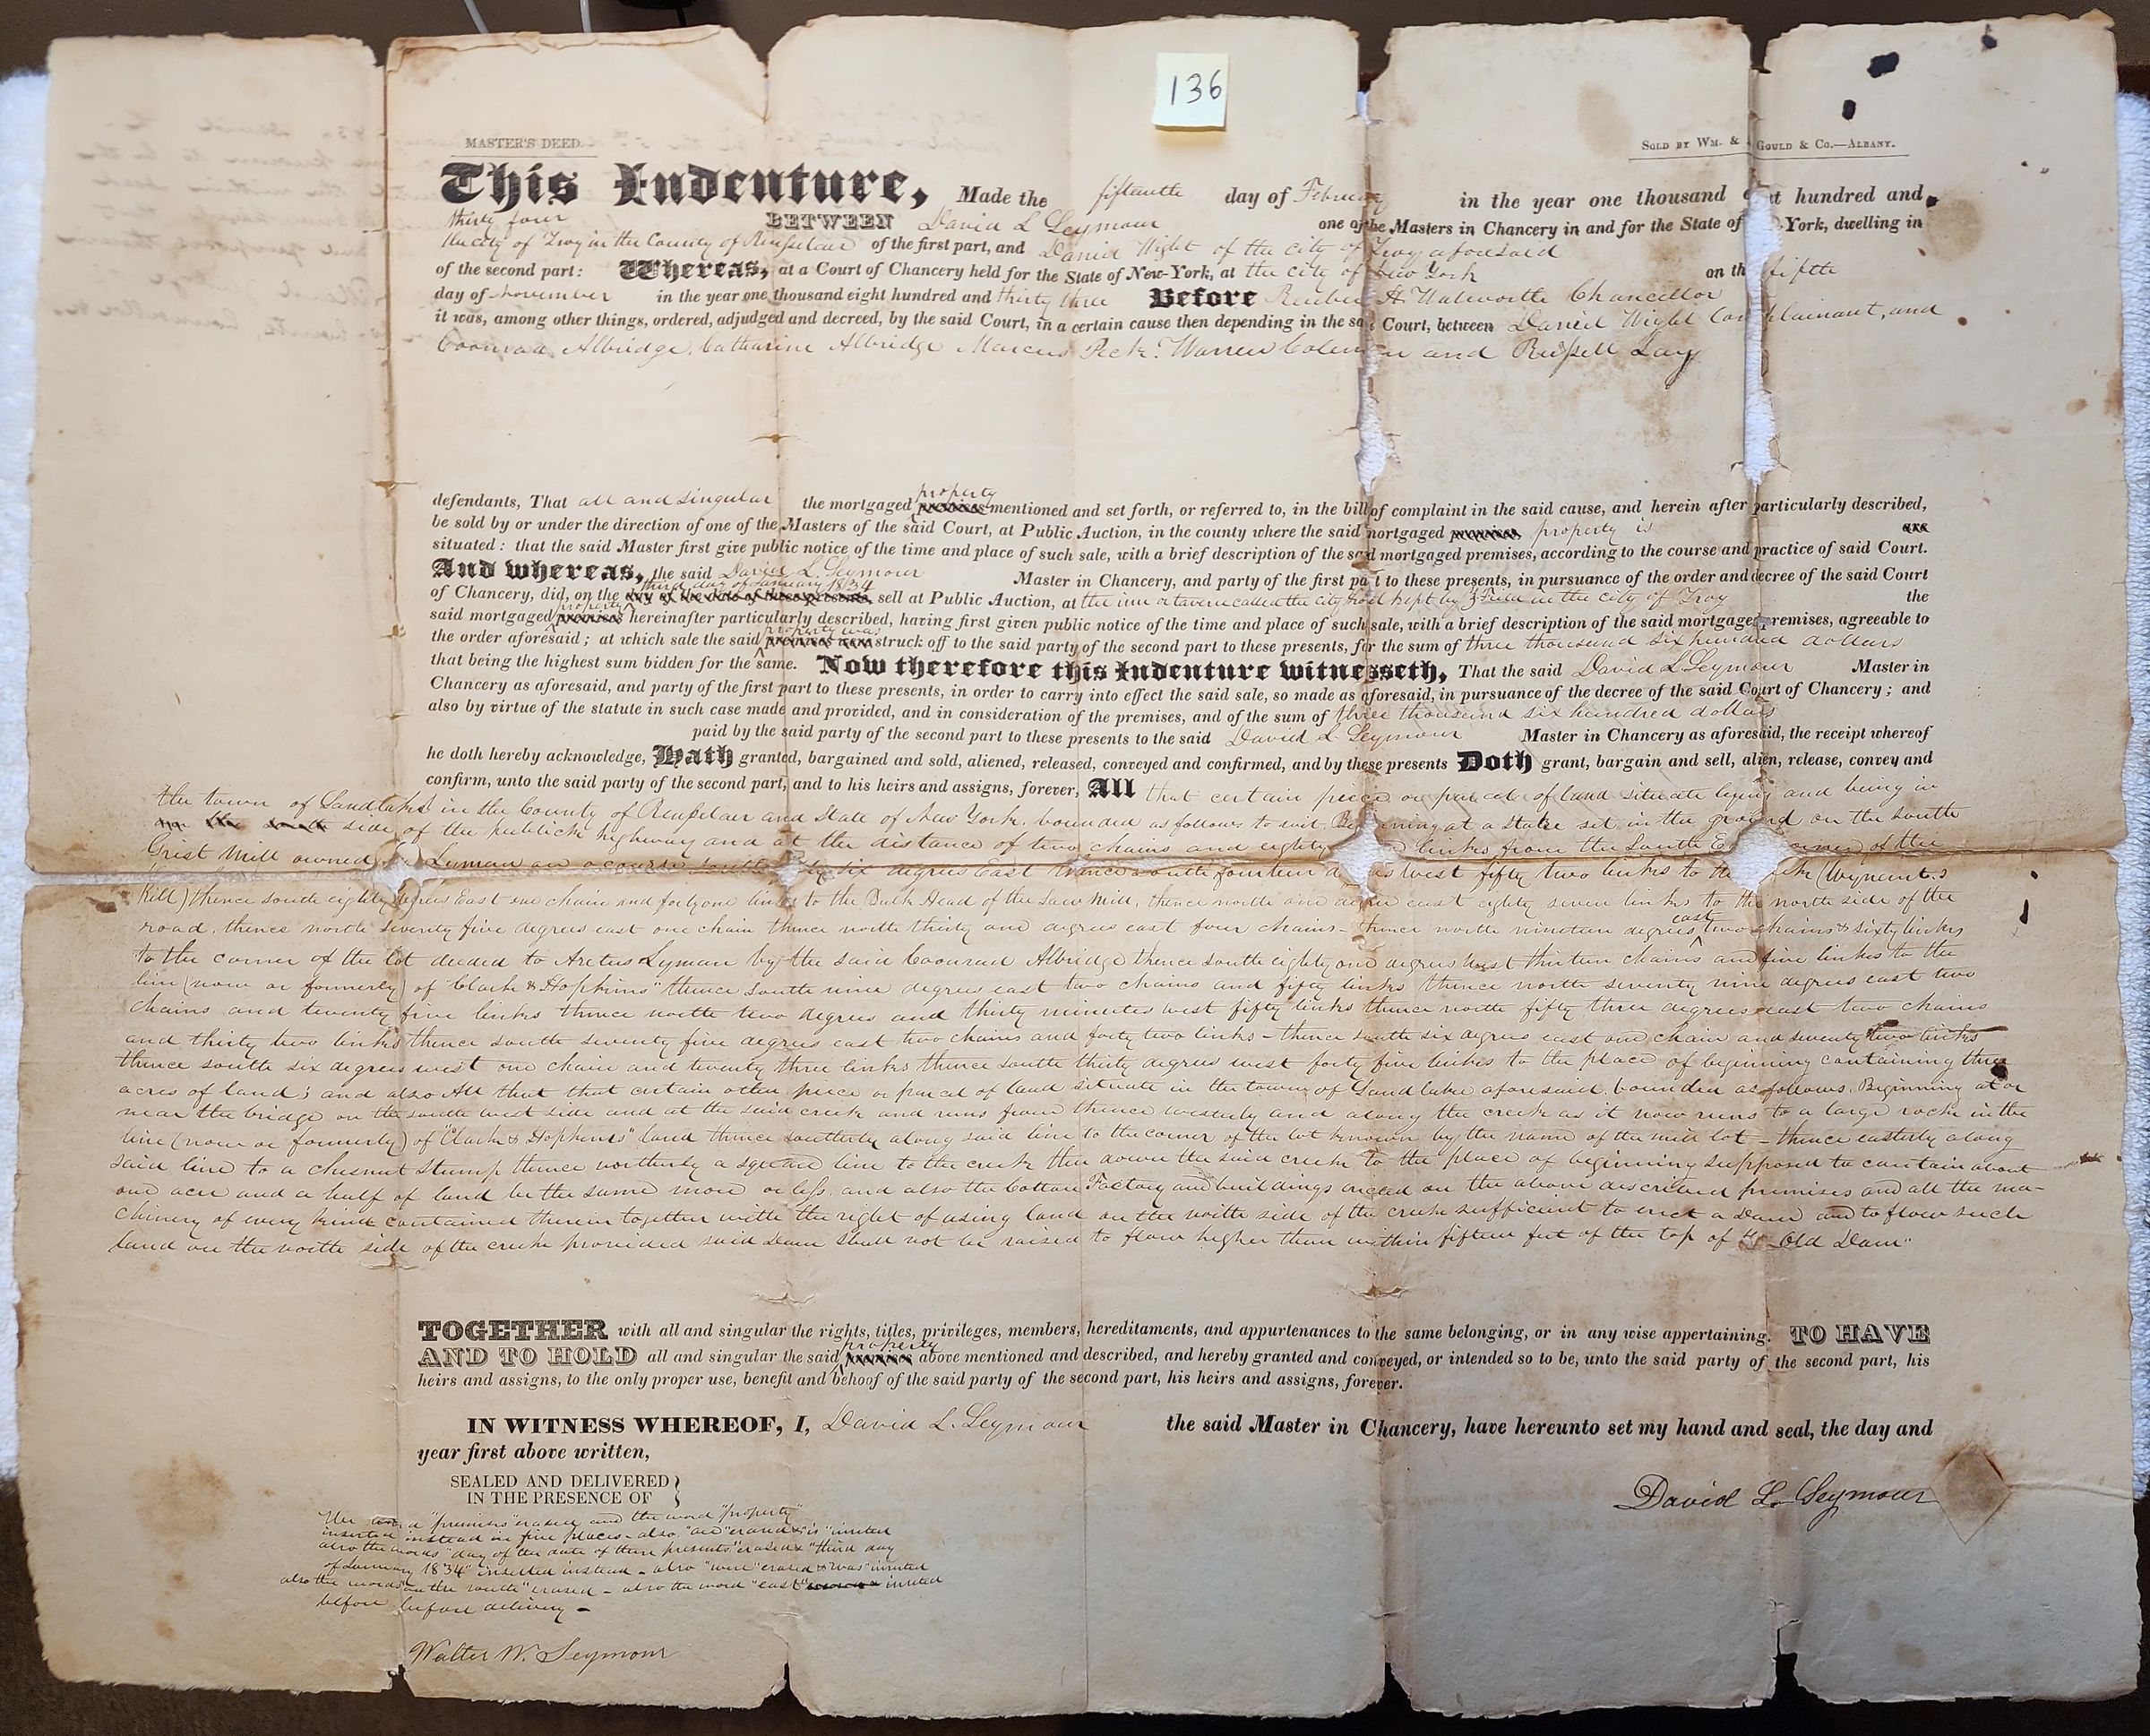 136
MASTER'S DEED.
SOLD BY WM. & GOULD & CO.—ALBANY.
This Indenture, Made the fifteenth day of February in the year one thousand eight hundred and
thirty four BETWEEN David L Seymour one of the Masters in Chancery in and for the State of York, dwelling in
the city of Troy in the County of Rensselaer of the first part, and Daniel Wight of the city of Troy aforesaid
of the second part: Whereas, at a Court of Chancery held for the State of New-York, at the city of New York on the fifth
day of November in the year one thousand eight hundred and thirty three Before Reuben H. Walworth Chancellor
it was, among other things, ordered, adjudged and decreed, by the said Court, in a certain cause then depending in the said Court, between Daniel Wight Complainant, and
Coonrad Albridge, Catharine Albridge Marcus Peck, Warren Coleman and Russell Lay
defendants, That all and singular the mortgaged property mentioned and set forth, or referred to, in the bill of complaint in the said cause, and herein after particularly described,
be sold by or under the direction of one of the Masters of the said Court, at Public Auction, in the county where the said mortgaged premises property is are
situated: that the said Master first give public notice of the time and place of such sale, with a brief description of the said mortgaged premises, according to the course and practice of said Court.
And whereas, the said David L. Seymour Master in Chancery, and party of the first part to these presents, in pursuance of the order and decree of the said Court
of Chancery, did, on the third day of January 1834 day of the date of these presents, sell at Public Auction, at the inn or tavern called the city hotel kept by Field in the city of Troy the
said mortgaged property premises hereinafter particularly described, having first given public notice of the time and place of such sale, with a brief description of the said mortgaged premises, agreeable to
the order aforesaid; at which sale the said property was premises were struck off to the said party of the second part to these presents, for the sum of three thousand six hundred dollars
that being the highest sum bidden for the same. Now therefore this Indenture witnesseth, That the said David L Seymour Master in
Chancery as aforesaid, and party of the first part to these presents, in order to carry into effect the said sale, so made as aforesaid, in pursuance of the decree of the said Court of Chancery; and
also by virtue of the statute in such case made and provided, and in consideration of the premises, and of the sum of three thousand six hundred dollars
paid by the said party of the second part to these presents to the said David L Seymour Master in Chancery as aforesaid, the receipt whereof
he doth hereby acknowledge, Hath granted, bargained and sold, aliened, released, conveyed and confirmed, and by these presents Doth grant, bargain and sell, alien, release, convey and
confirm, unto the said party of the second part, and to his heirs and assigns, forever, All that certain piece or parcel of land situate lying and being in
the town of Sandlake in the County of Rensselaer and State of New York, bounded as follows to wit, Beginning at a stake set in the ground on the south
on the south side of the publick highway and at the distance of two chains and eighty links from the South corner of the
Grist Mill owned Lyman on a course south six degrees East thence south fourteen west fifty two links to the (Wynant's
Kill) thence south eighty degrees East one chain and forty one links to the Bulk Head of the Saw Mill, thence north one degree east eighty seven links to the north side of the
road, thence north seventy five degrees east one chain thence north thirty one degrees east four chains - thence north nineteen degrees east two chains & sixty links
to the corner of the lot deeded to Aretus Lyman by the said Coonrad Albridge thence south eighty one degrees west thirteen chains and five links to the
line (now or formerly) of "Clark & Hopkins" thence south nine degrees east two chains and fifty links thence north seventy nine degrees east two
chains and twenty five links thence north two degrees and thirty minutes west fifty links thence north fifty three degrees east two chains
and thirty two links thence south seventy five degrees east two chains and forty two links - thence south six degrees east one chain and seventy two links
thence south six degrees west one chain and twenty three links thence south thirty degrees west forty five links to the place of beginning containing three
acres of land; and also All that that certain other piece or parcel of land situate in the town of Sandlake aforesaid, bounded as follows, Beginning at or
near the bridge on the south west side and at the said creek and runs from thence westerly and along the creek as it now runs to a large rock in the
line (now or formerly) of "Clark & Hopkins" land thence southerly along said line to the corner of the lot known by the name of the mill lot - thence easterly along
said line to a chesnut stump thence northerly a square line to the creek then down the said creek to the place of beginning supposed to contain about
one acre and a half of land be the same more or less, and also the Cotton Factory and buildings erected on the above described premises and all the ma-
chinery of every kind contained therein together with the right of using land on the north side of the creek sufficient to erect a Dam and to flow such
land on the north side of the creek provided said Dam shall not be raised to flow higher than within fifteen feet of the top of "Old Dam"
TOGETHER with all and singular the rights, titles, privileges, members, hereditaments, and appurtenances to the same belonging, or in any wise appertaining. TO HAVE
AND TO HOLD all and singular the said property premises above mentioned and described, and hereby granted and conveyed, or intended so to be, unto the said party of the second part, his
heirs and assigns, to the only proper use, benefit and behoof of the said party of the second part, his heirs and assigns, forever.
IN WITNESS WHEREOF, I, David L. Seymour the said Master in Chancery, have hereunto set my hand and seal, the day and
year first above written,
SEALED AND DELIVERED
IN THE PRESENCE OF
David L. Seymour
The word "premises" erased and the word "property"
inserted instead in five places - also "are" erased & "is" inserted
also the words "day of the date of these presents" erased & "third day
of January 1834" inserted instead - also "were" erased & "was" inserted
also the words "on the south" erased - also the word "east" inserted
before before delivery -
Walter W. Seymour